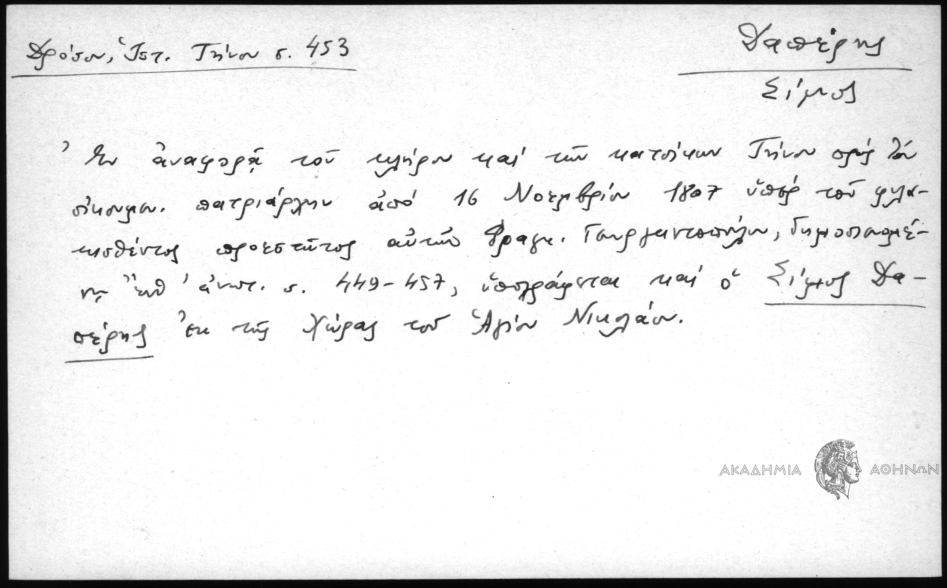 Δρόσου, Ἱστ. Τήνου σ. 453
Δαπέρης
Σίμος
Ἐν ἀναφορᾷ τοῦ κλήρου καὶ τῶν κατοίκων Τήνου πρὸς τὸν
οἰκουμ. πατριάρχην ἀπό 16 Νοεμβρίου 1807 ὑπὲρ τοῦ φυλα-
κισθέντος προεστῶτος αὐτῶν Φραγκ. δημοσιευομέ-
νῃ ἔνθ' ἀνωτ. σ. 449-457, ὑπογράφεται καὶ ὁ Σίμος Δα-
πέρης ἐκ τῆς Χώρας τοῦ Ἁγίου Νικολάου.
ΑΚΑΔΗΜΙΑ ΑΘΗΝΩΝ